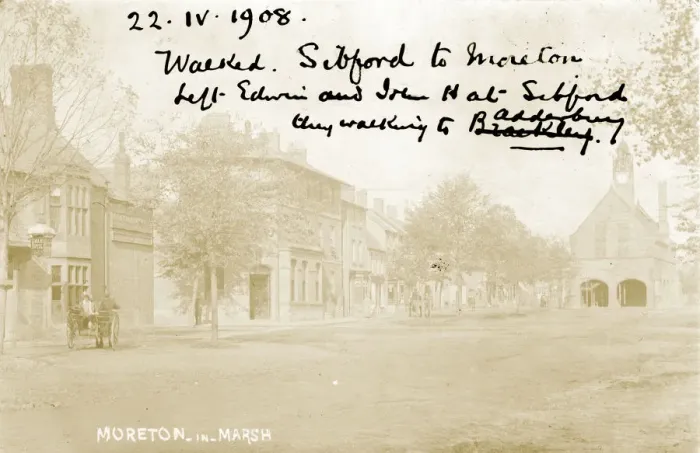 22. IV. 1908.
Walked. Sibford to Moreton
Left Edwin and John H at Sibford
they walking to Brackley. Adderbury
MORETON-IN-MARSH